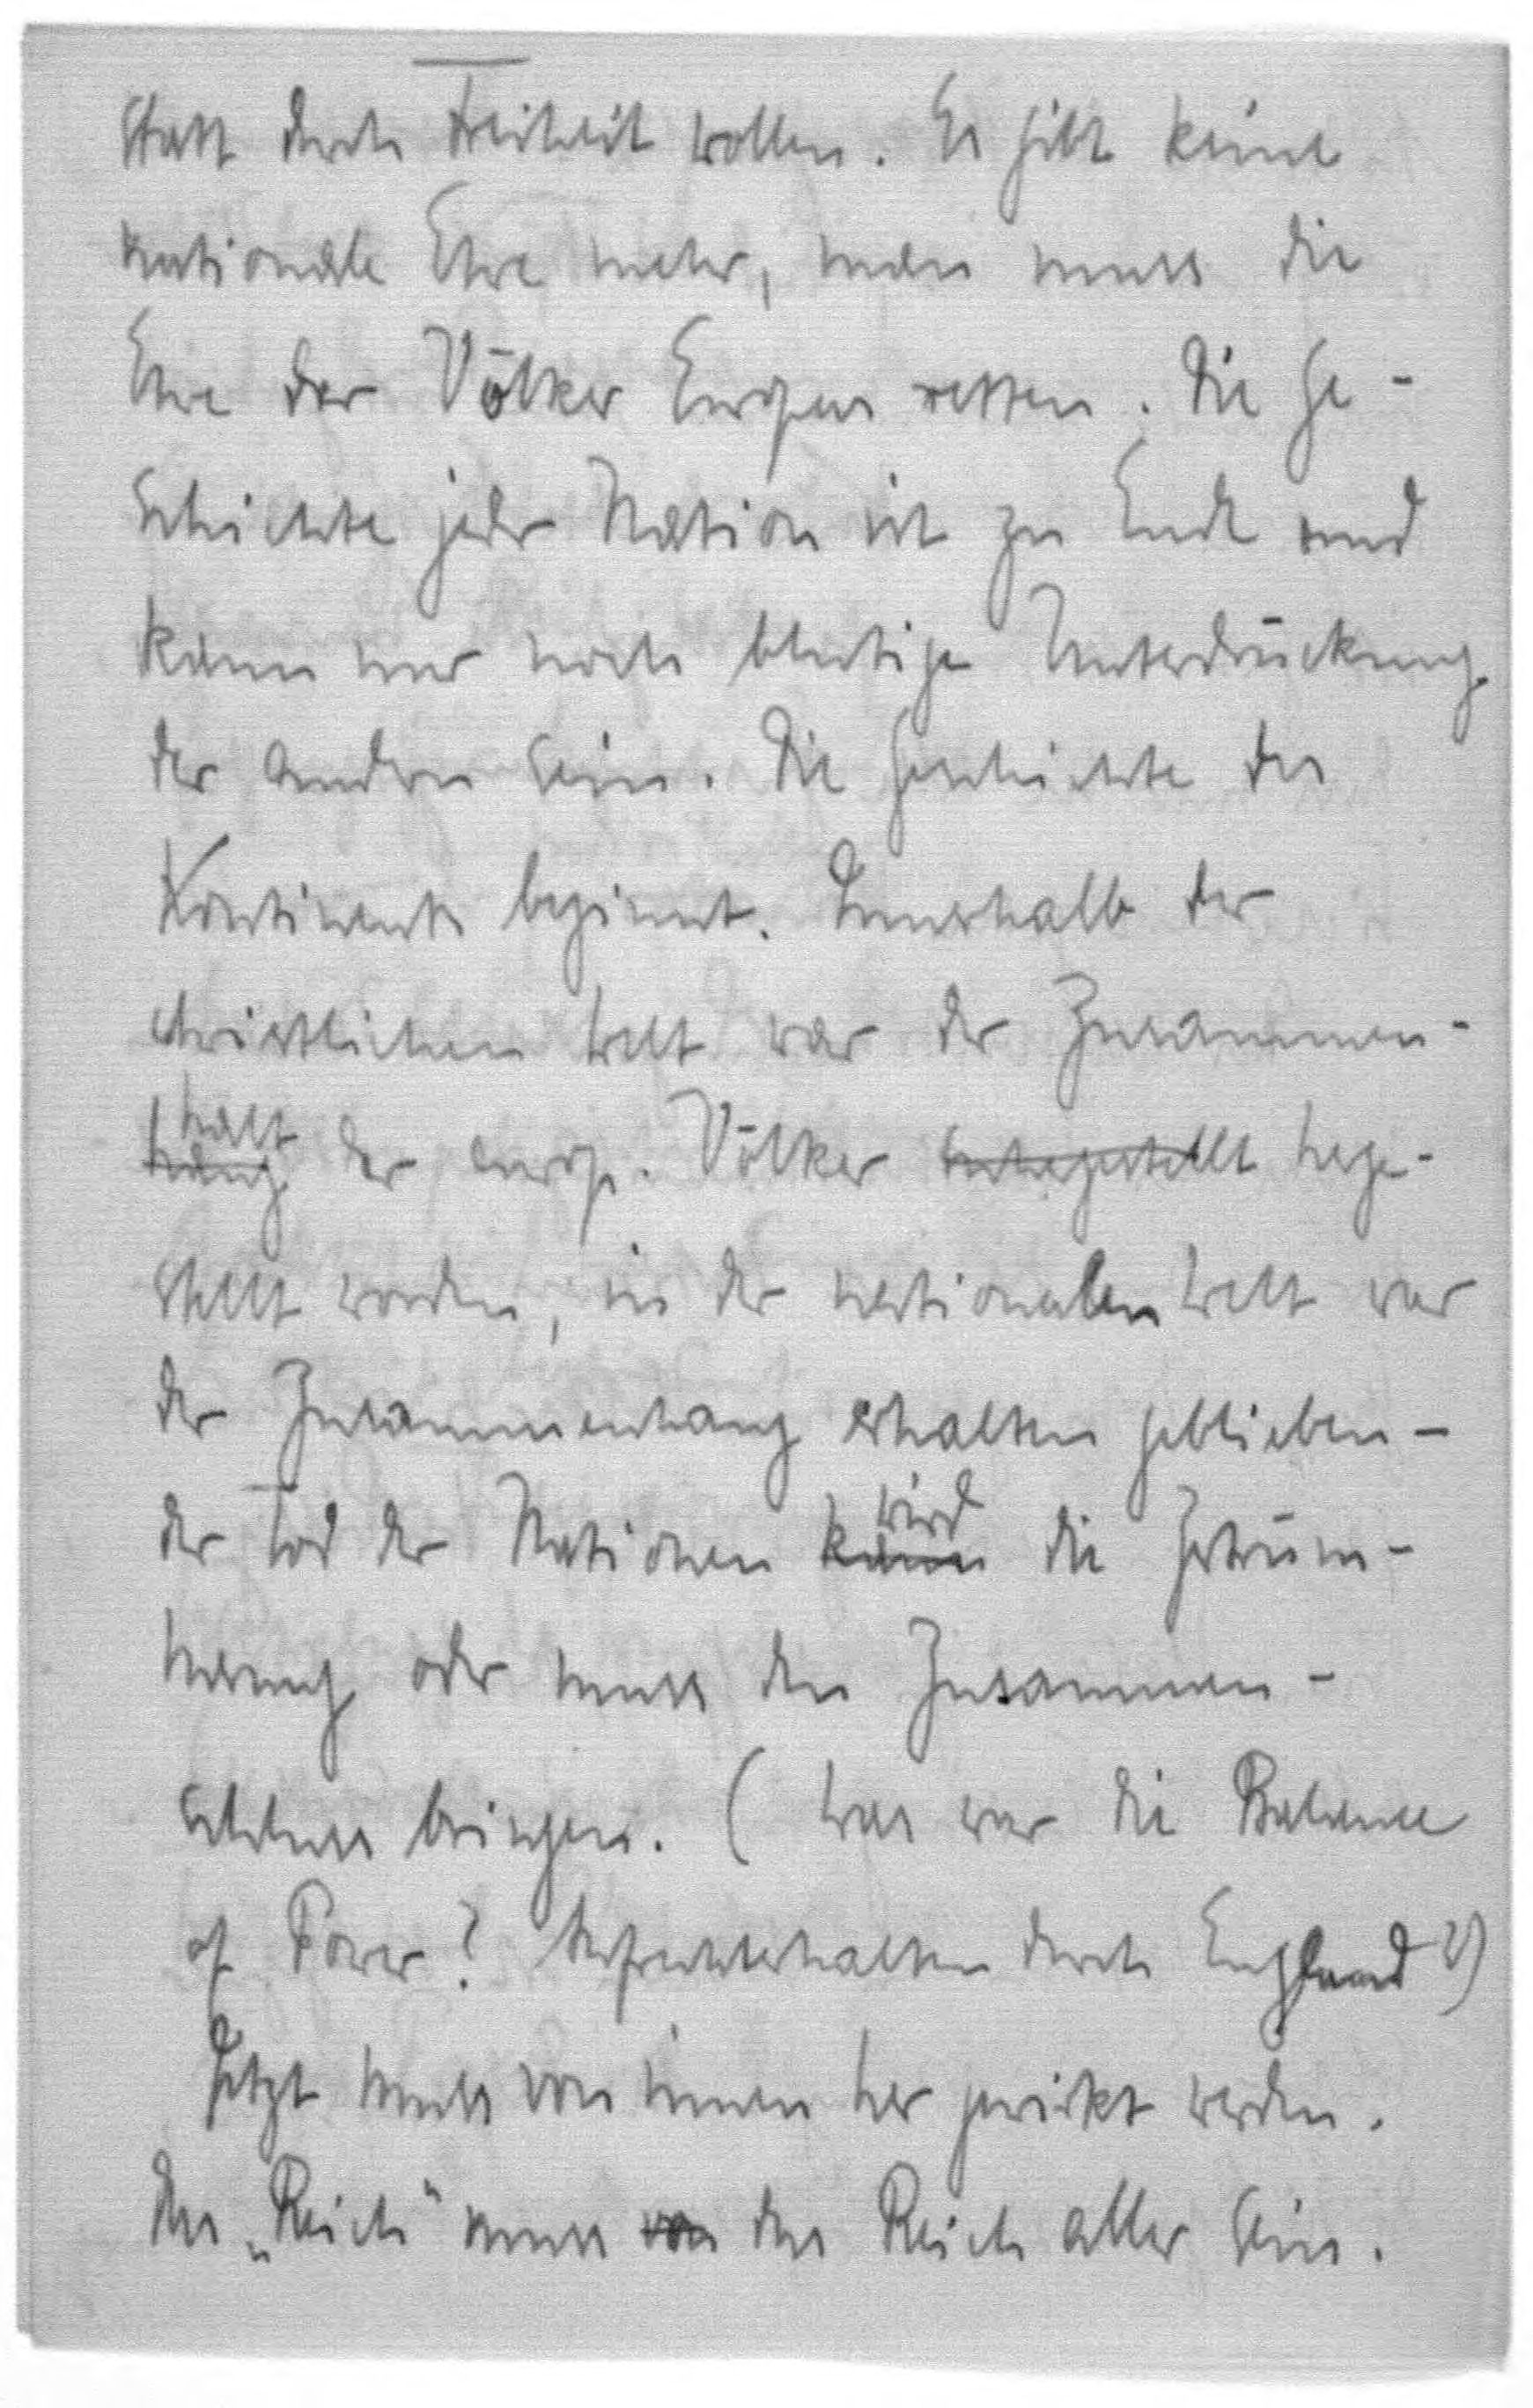 statt durch Freiheit wollen. Es gibt keine
nationale Ehre mehr, man muss die
Ehre der Völker Europas retten. Die Ge-
schichte jeder Nation ist zu Ende und
kann nur noch blutige Unterdrückung
der andern sein. Die Geschichte des
Kontinents beginnt. Innerhalb der
christlichen Welt war der Zusammen-
halt
hang der europ. Völker hergestellt herge-
stellt worden, in der nationalen Welt war
der Zusammenhang erhalten geblieben -
wird
der Tod der Nationen kann die Zertrüm-
merung oder muss den Zusammen-
schluss bringen. (Was war die Balance
of Power? Aufrechterhalten durch England?)
Jetzt muss von innen her gewirkt werden.
Das „Reich" muss von das Reich aller sein.